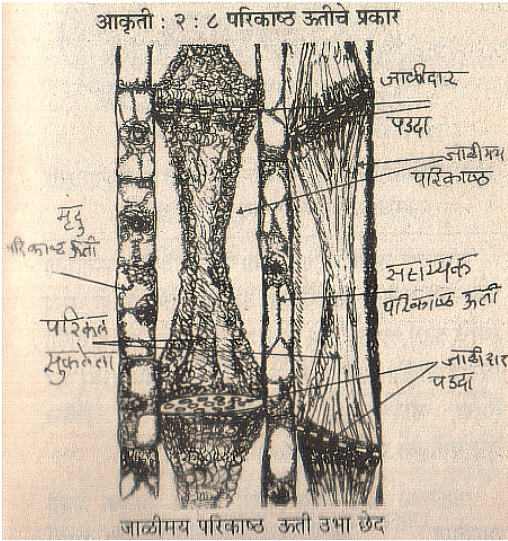 आकृती : २ : ८ परिकाष्ठ ऊतीचे प्रकार
जाळीदार
पडदा
जाळीमय
परिकाष्ठ
मृदु
परिकाष्ठ ऊती
सहाय्यक
परिकाष्ठ ऊती
परिकल
सुकलेला
जाळीदार
पडदा
जाळीमय परिकाष्ठ ऊती उभा छेद